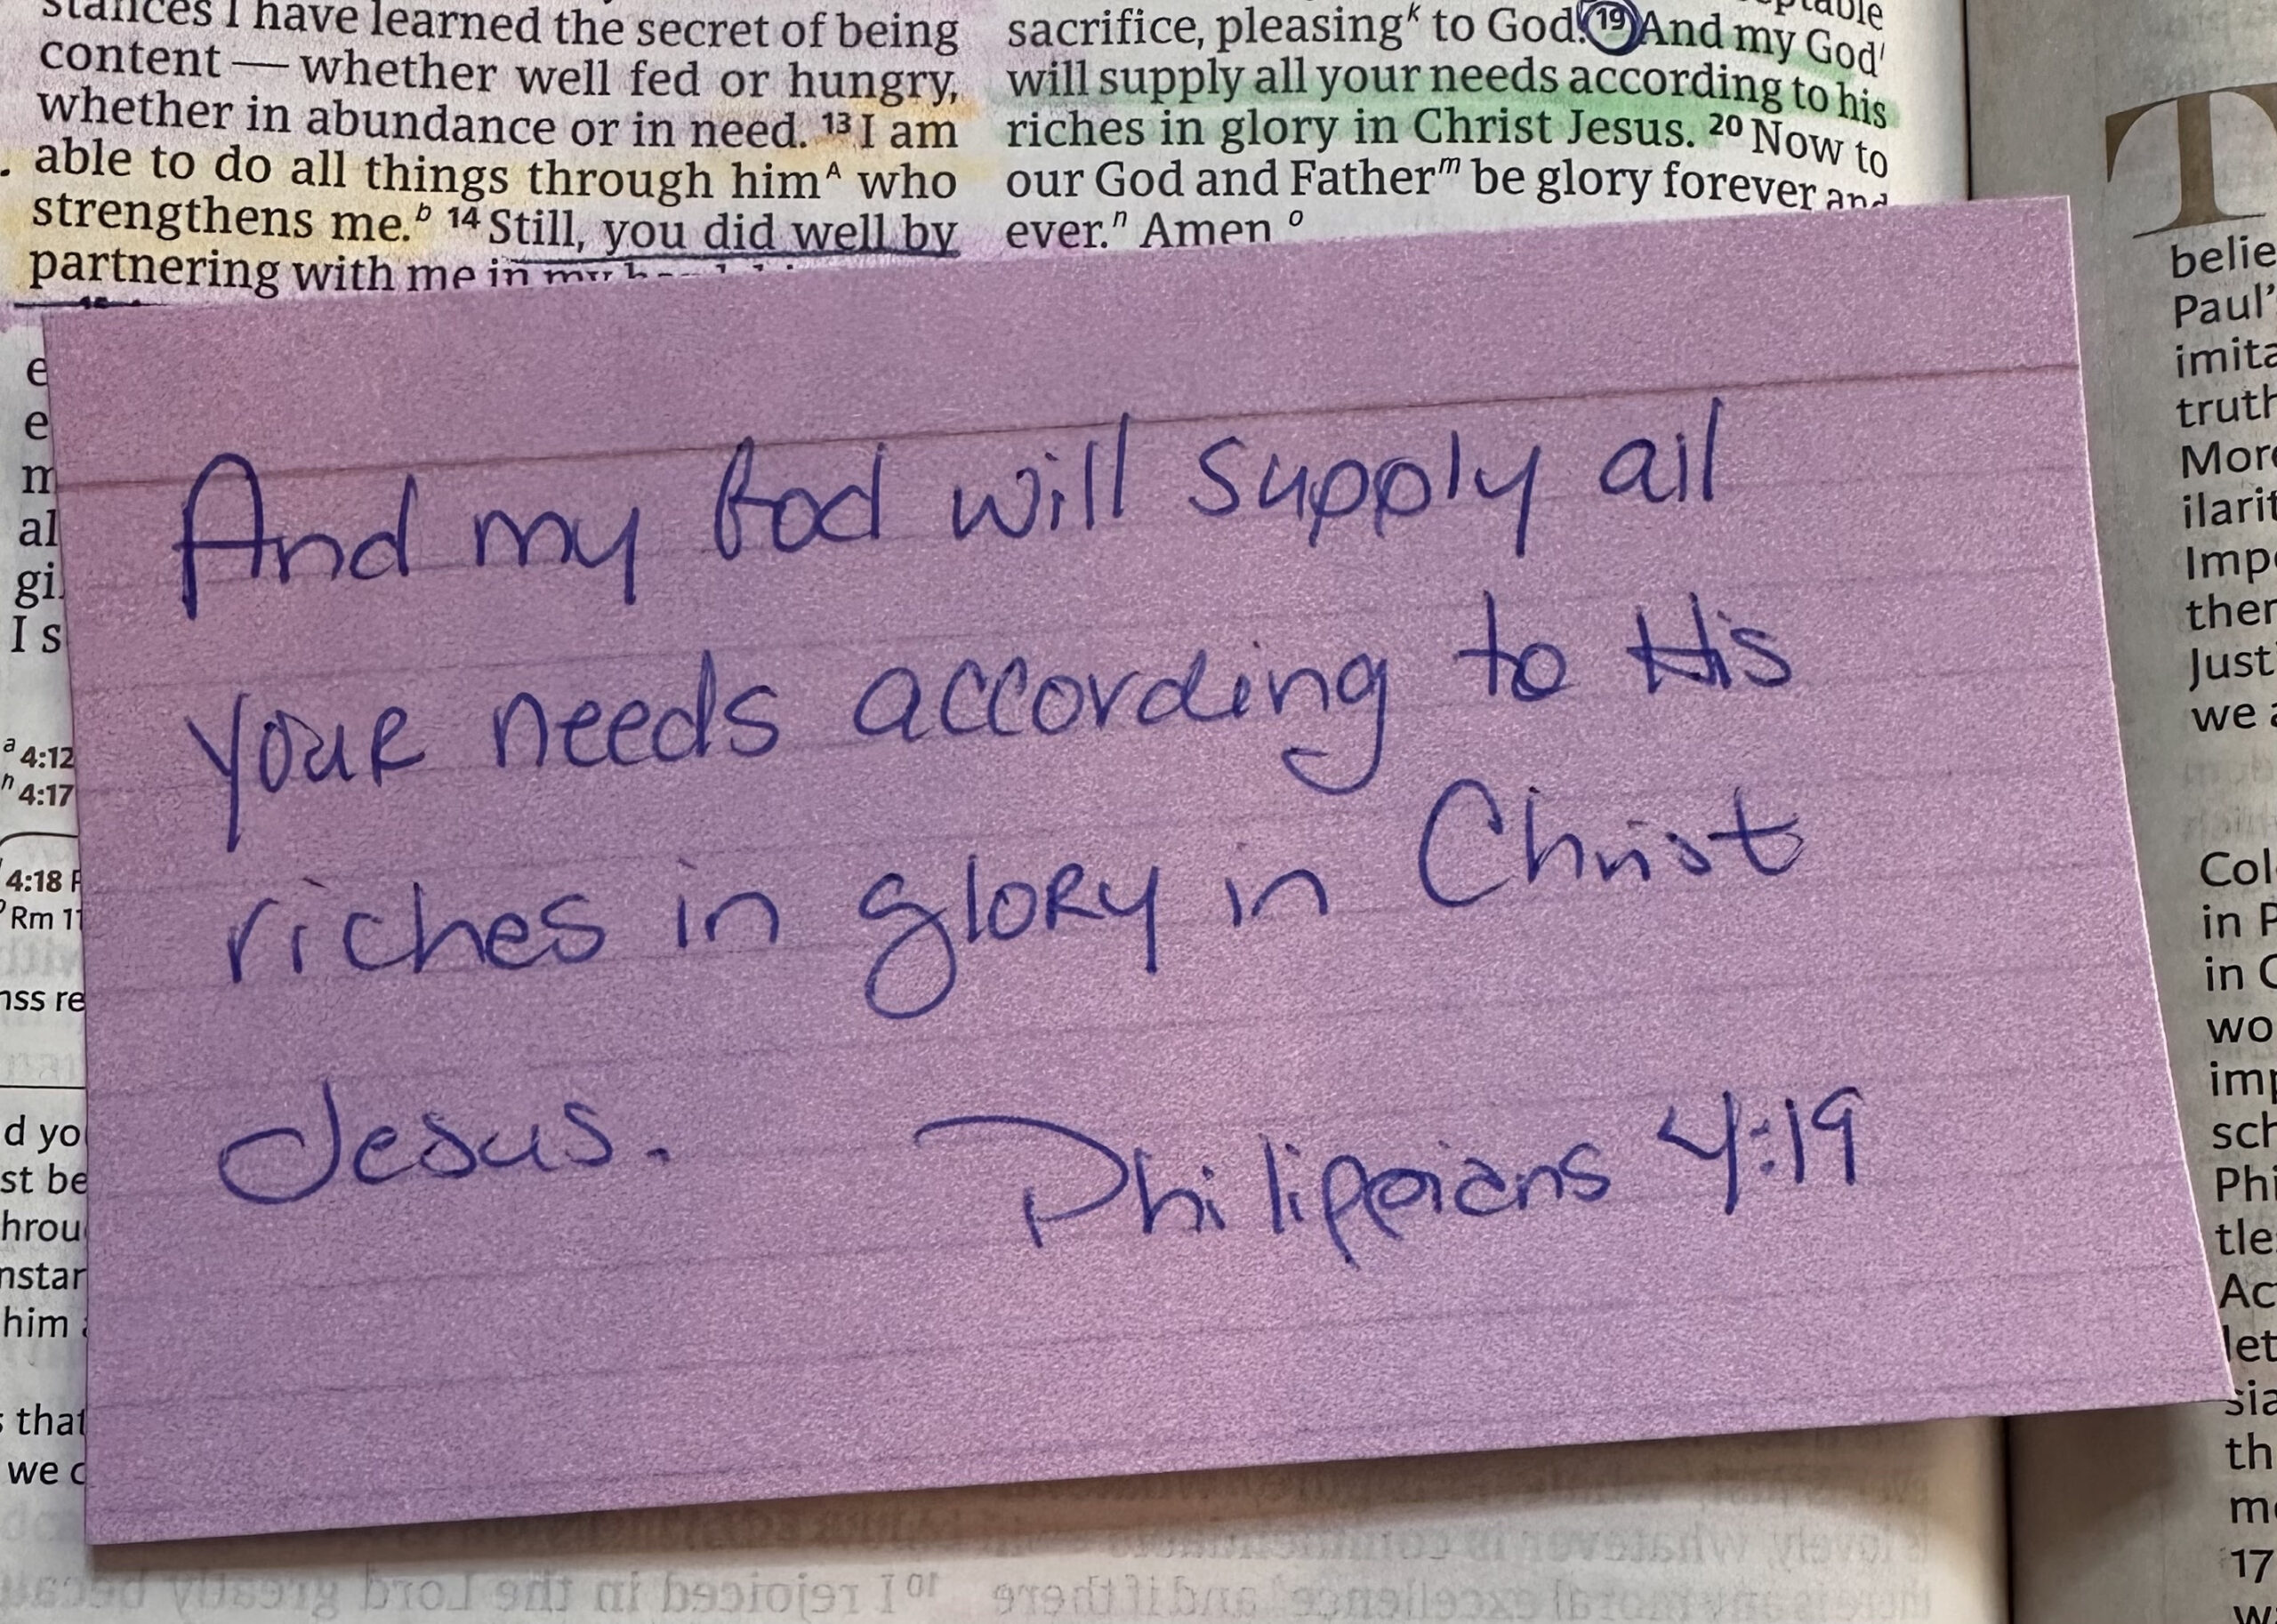 stances I have learned the secret of being
content — whether well fed or hungry,
whether in abundance or in need. 13 I am
able to do all things through him A who
strengthens me. b 14 Still, you did well by
partnering with me in my
sacrifice, pleasing k to God. 19 And my God l
will supply all your needs according to his
riches in glory in Christ Jesus. 20 Now to
our God and Father m be glory forever and
ever. n Amen o
And my God will supply all
your needs according to His
riches in glory in Christ
Jesus. Philippians 4:19
a 4:12
n 4:17
4:18
Rm 11
I s
him
that
we
T
belie
Paul’
imita
truth
More
ilarit
Impo
ther
Just
we a
Col
in P
in C
wo
imp
sch
Phi
tle
Ac
let
sia
th
17